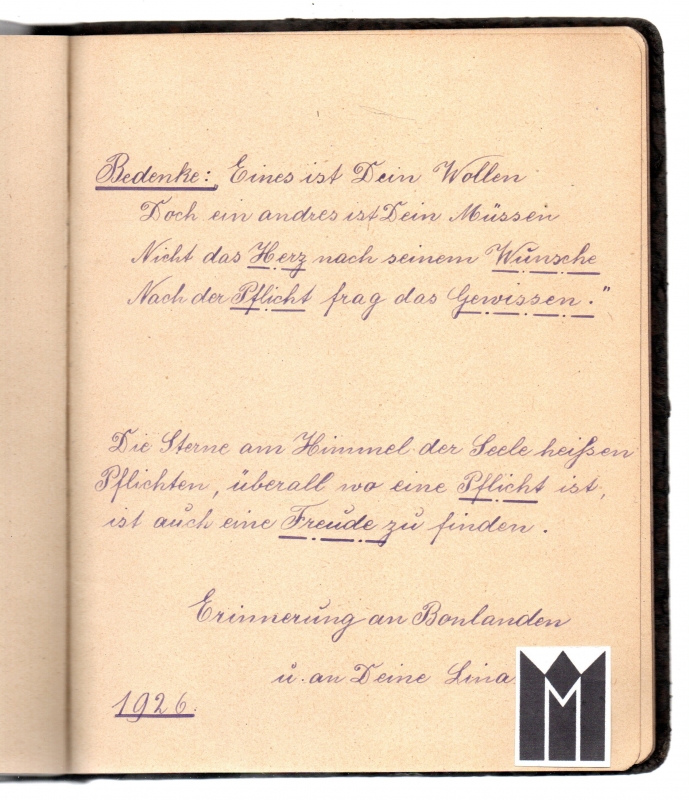 Bedenke: „Eines ist Dein Wollen
Doch ein andres ist Dein Müssen
Nicht das Herz nach seinem Wunsche
Nach der Pflicht frag das Gewissen."
Die Sterne am Himmel der Seele heißen
Pflichten, überall wo eine Pflicht ist,
ist auch eine Freude zu finden.
Erinnerung an Bonlanden
u. an Deine Lina
1926.